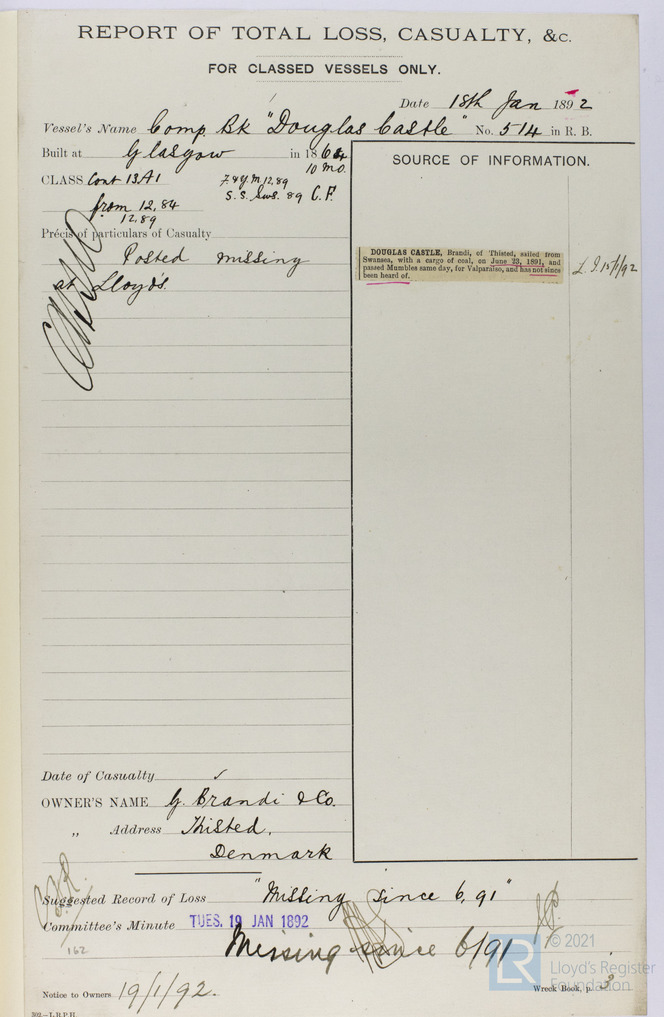 REPORT OF TOTAL LOSS, CASUALTY, &c.
FOR CLASSED VESSELS ONLY.
Date 18th Jan 1892
Vessel's Name Comp Bk "Douglas Castle" No. 514 in R. B.
Built at Glasgow in 1864
10 mo.
CLASS Cont 13A1
from 12,84
12,89
7&9M.12,89
S.S. Sws. 89 C.F.
Précis of particulars of Casualty
Posted missing
at Lloyd's.
SOURCE OF INFORMATION.
DOUGLAS CASTLE, Brandi, of Thisted, sailed from
Swansea, with a cargo of coal, on June 23, 1891, and
passed Mumbles same day, for Valparaiso, and has not since
been heard of.
L. I. 15/1/92
Date of Casualty
OWNER'S NAME G. Brandi & Co.
„ Address Thisted,
Denmark
Suggested Record of Loss "Missing since 6,91"
Committee's Minute TUES. 19 JAN 1892
Missing since 6/91
162
Notice to Owners 19/1/92.
Wreck Book, p. 3
302.—L.R.P.H.
© 2021
Lloyd's Register
Foundation
LR